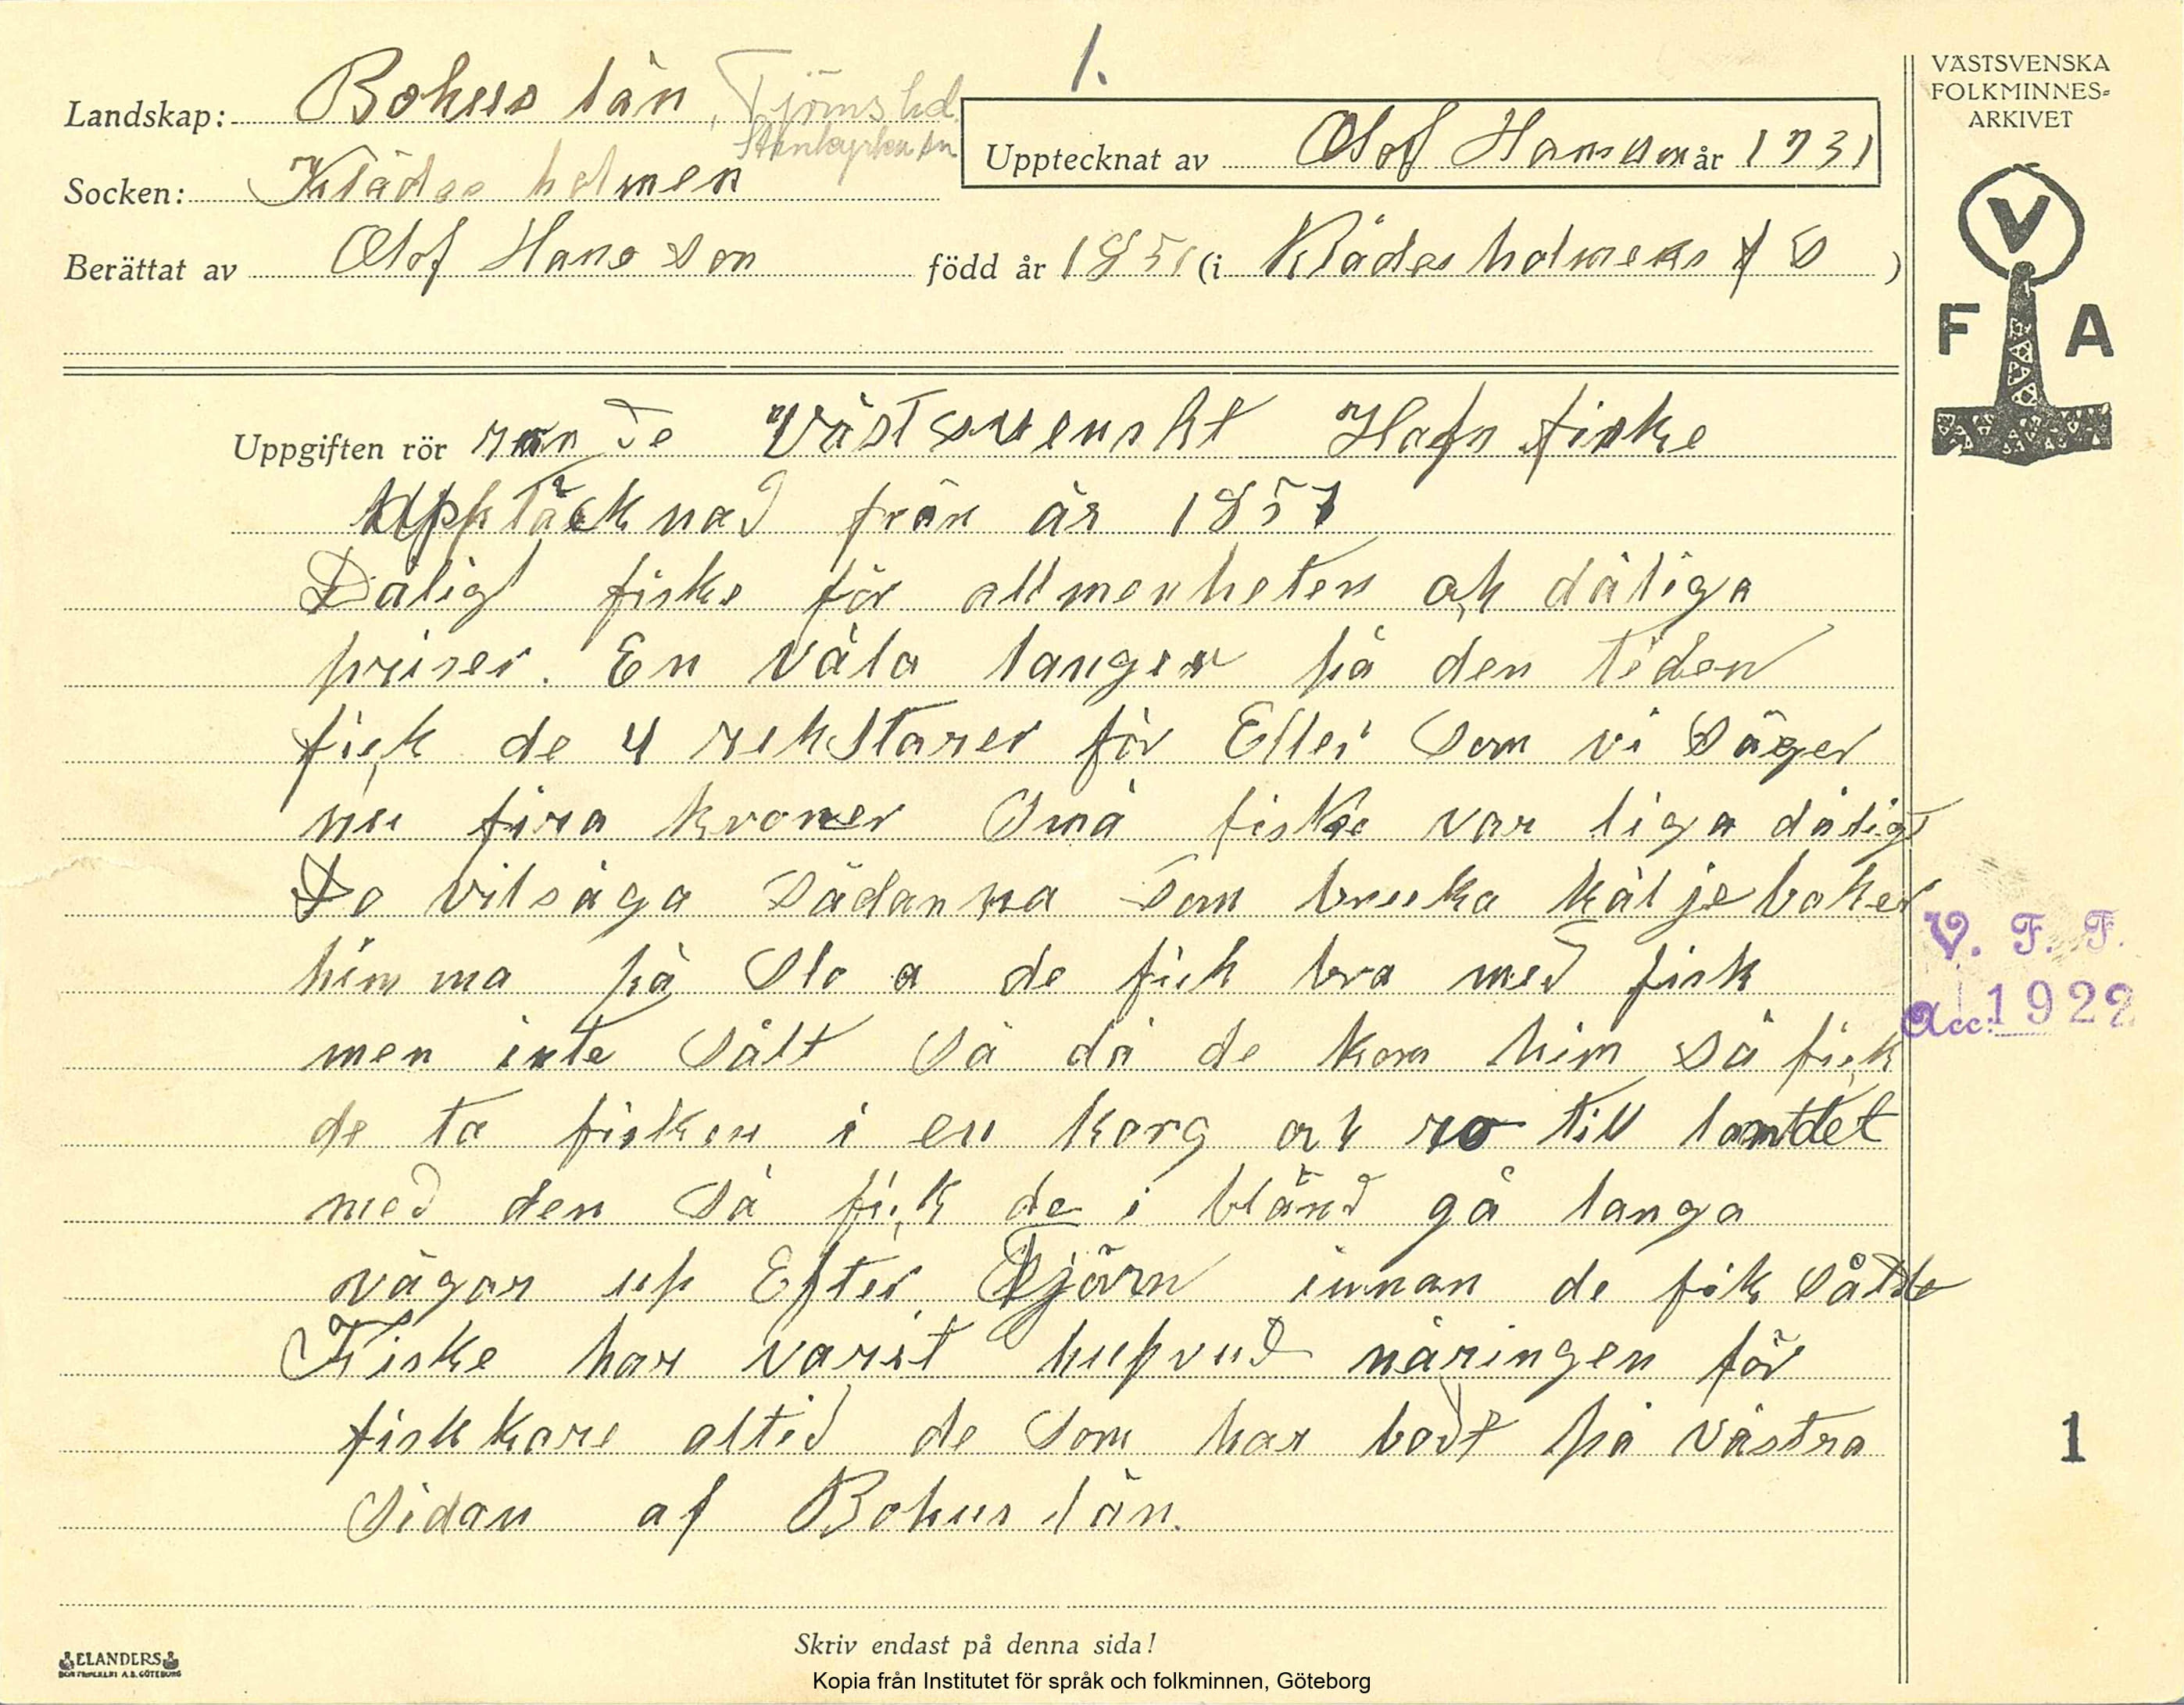 1.
Landskap: Bohus län, Tjörns hd.
Stenkyrka sn
Socken: Klädesholmen
Upptecknat av Olof Hansson år 1931
Berättat av Olof Hansson född år 1851 (i Klädesholmens f S)
VÄSTSVENSKA
FOLKMINNES=
ARKIVET
V
F A
Uppgiften rör rande Västsvenskt Hafs fiske
Upptäcknad från år 1851
Dåligt fiske för allmenheten ok dåliga
priser. En våla langer på den tiden
fick de 4 rekstarer för Eller som vi säger
nu fira kroner Små fiske var liga dåligt
Do vil säga sådanna som bruka kälje boker
himma på Slo a de fick bra med fisk
men inte sålt så då de kom him så fick
de ta fisken i en korg ok ro till landet
med den så fick de i bland gå langa
vägar up Efter Tjörn innan de fik sålde
Fiske har varit hupvud näringen för
fiskkare altid de som har bodt på västra
sidan af Bohus län.
V. F. T.
Acc. 1922
1
Skriv endast på denna sida!
ELANDERS
BOKTRYCKERI A.B. GÖTEBORG
Kopia från Institutet för språk och folkminnen, Göteborg